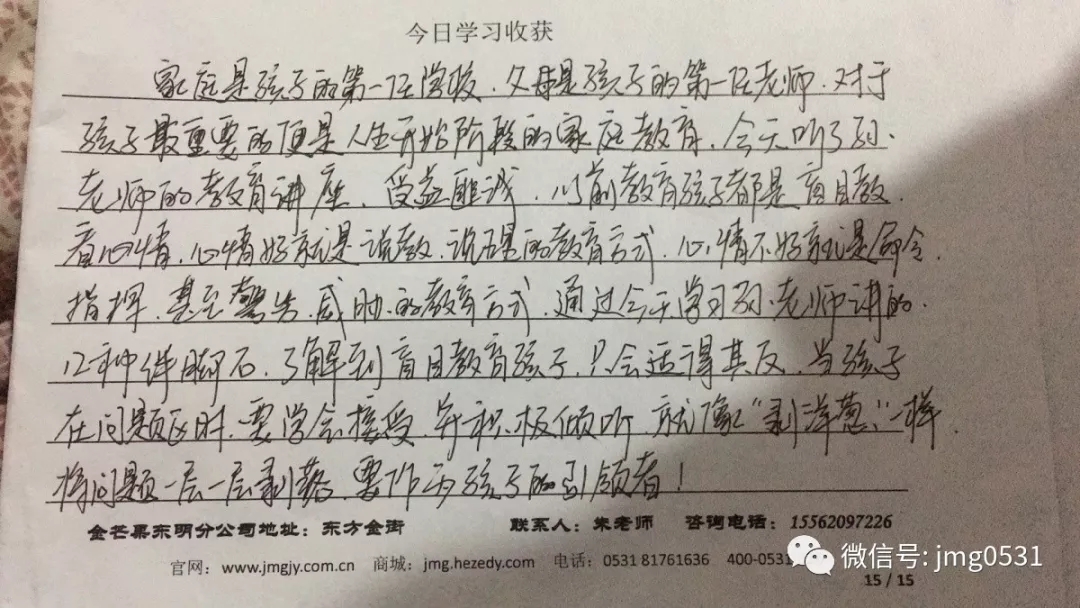 今日学习收获
家庭是孩子的第一任学校，父母是孩子的第一任老师，对于
孩子最重要的便是人生开始阶段的家庭教育，今天听了孙
老师的教育讲座，受益匪浅，以前教育孩子都是盲目教，
看心情，心情好就是说教，说理的教育方式，心情不好就是命令，
指挥，甚至警告，威胁的教育方式，通过今天学习孙老师讲的，
12种绊脚石，了解到盲目教育孩子，只会适得其反，当孩子
在问题区时，要学会接受，并积极倾听，就像“剥洋葱”一样，
将问题一层一层剥落，要作为孩子的引领者！
金芒果东明分公司地址：东方金街 联系人：朱老师 咨询电话：15562097226
官网：www.jmgjy.com.cn 商城：jmg.hezedy.com 电话：0531 81761636 400-0531
微信号: jmg0531
15 / 15